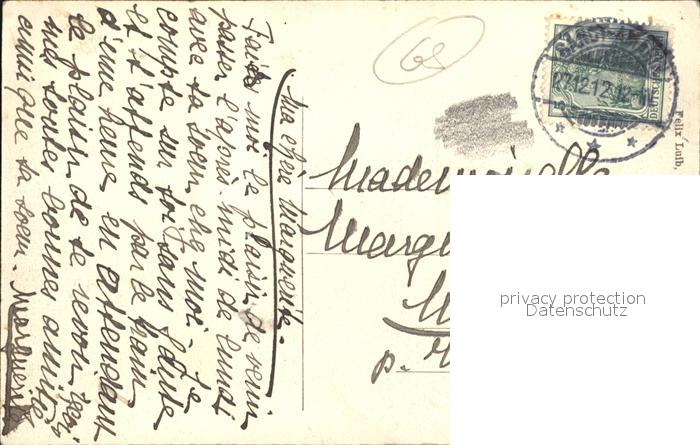 Ma chère Marguerite.
Fais moi le plaisir de venir
passer l'après-midi de lundi
avec ta soeur, chez moi. Je
compte sur toi sans faute
et t'attends par le train
d'une heure en attendant
le plaisir de te revoir,
mes toutes bonnes amitiés
ainsi que ta soeur. Marguerite
68
27.12.12. 12-1
DEUTSCHES
Felix Luib,
Mademoiselle
Marg
p.
privacy protection
Datenschutz